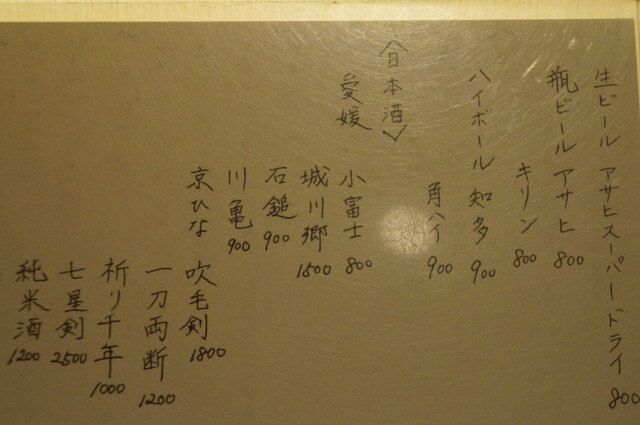 生ビール アサヒスーパードライ 800
瓶ビール アサヒ 800
キリン 800
ハイボール 知多 900
角ハイ 900
〈日本酒〉
愛媛
小富士 800
城川郷 1500
石鎚 900
川亀 900
京ひな 吹毛剣 1800
一刀両断 1200
祈り千年 1000
七星剣 2500
純米酒 1200